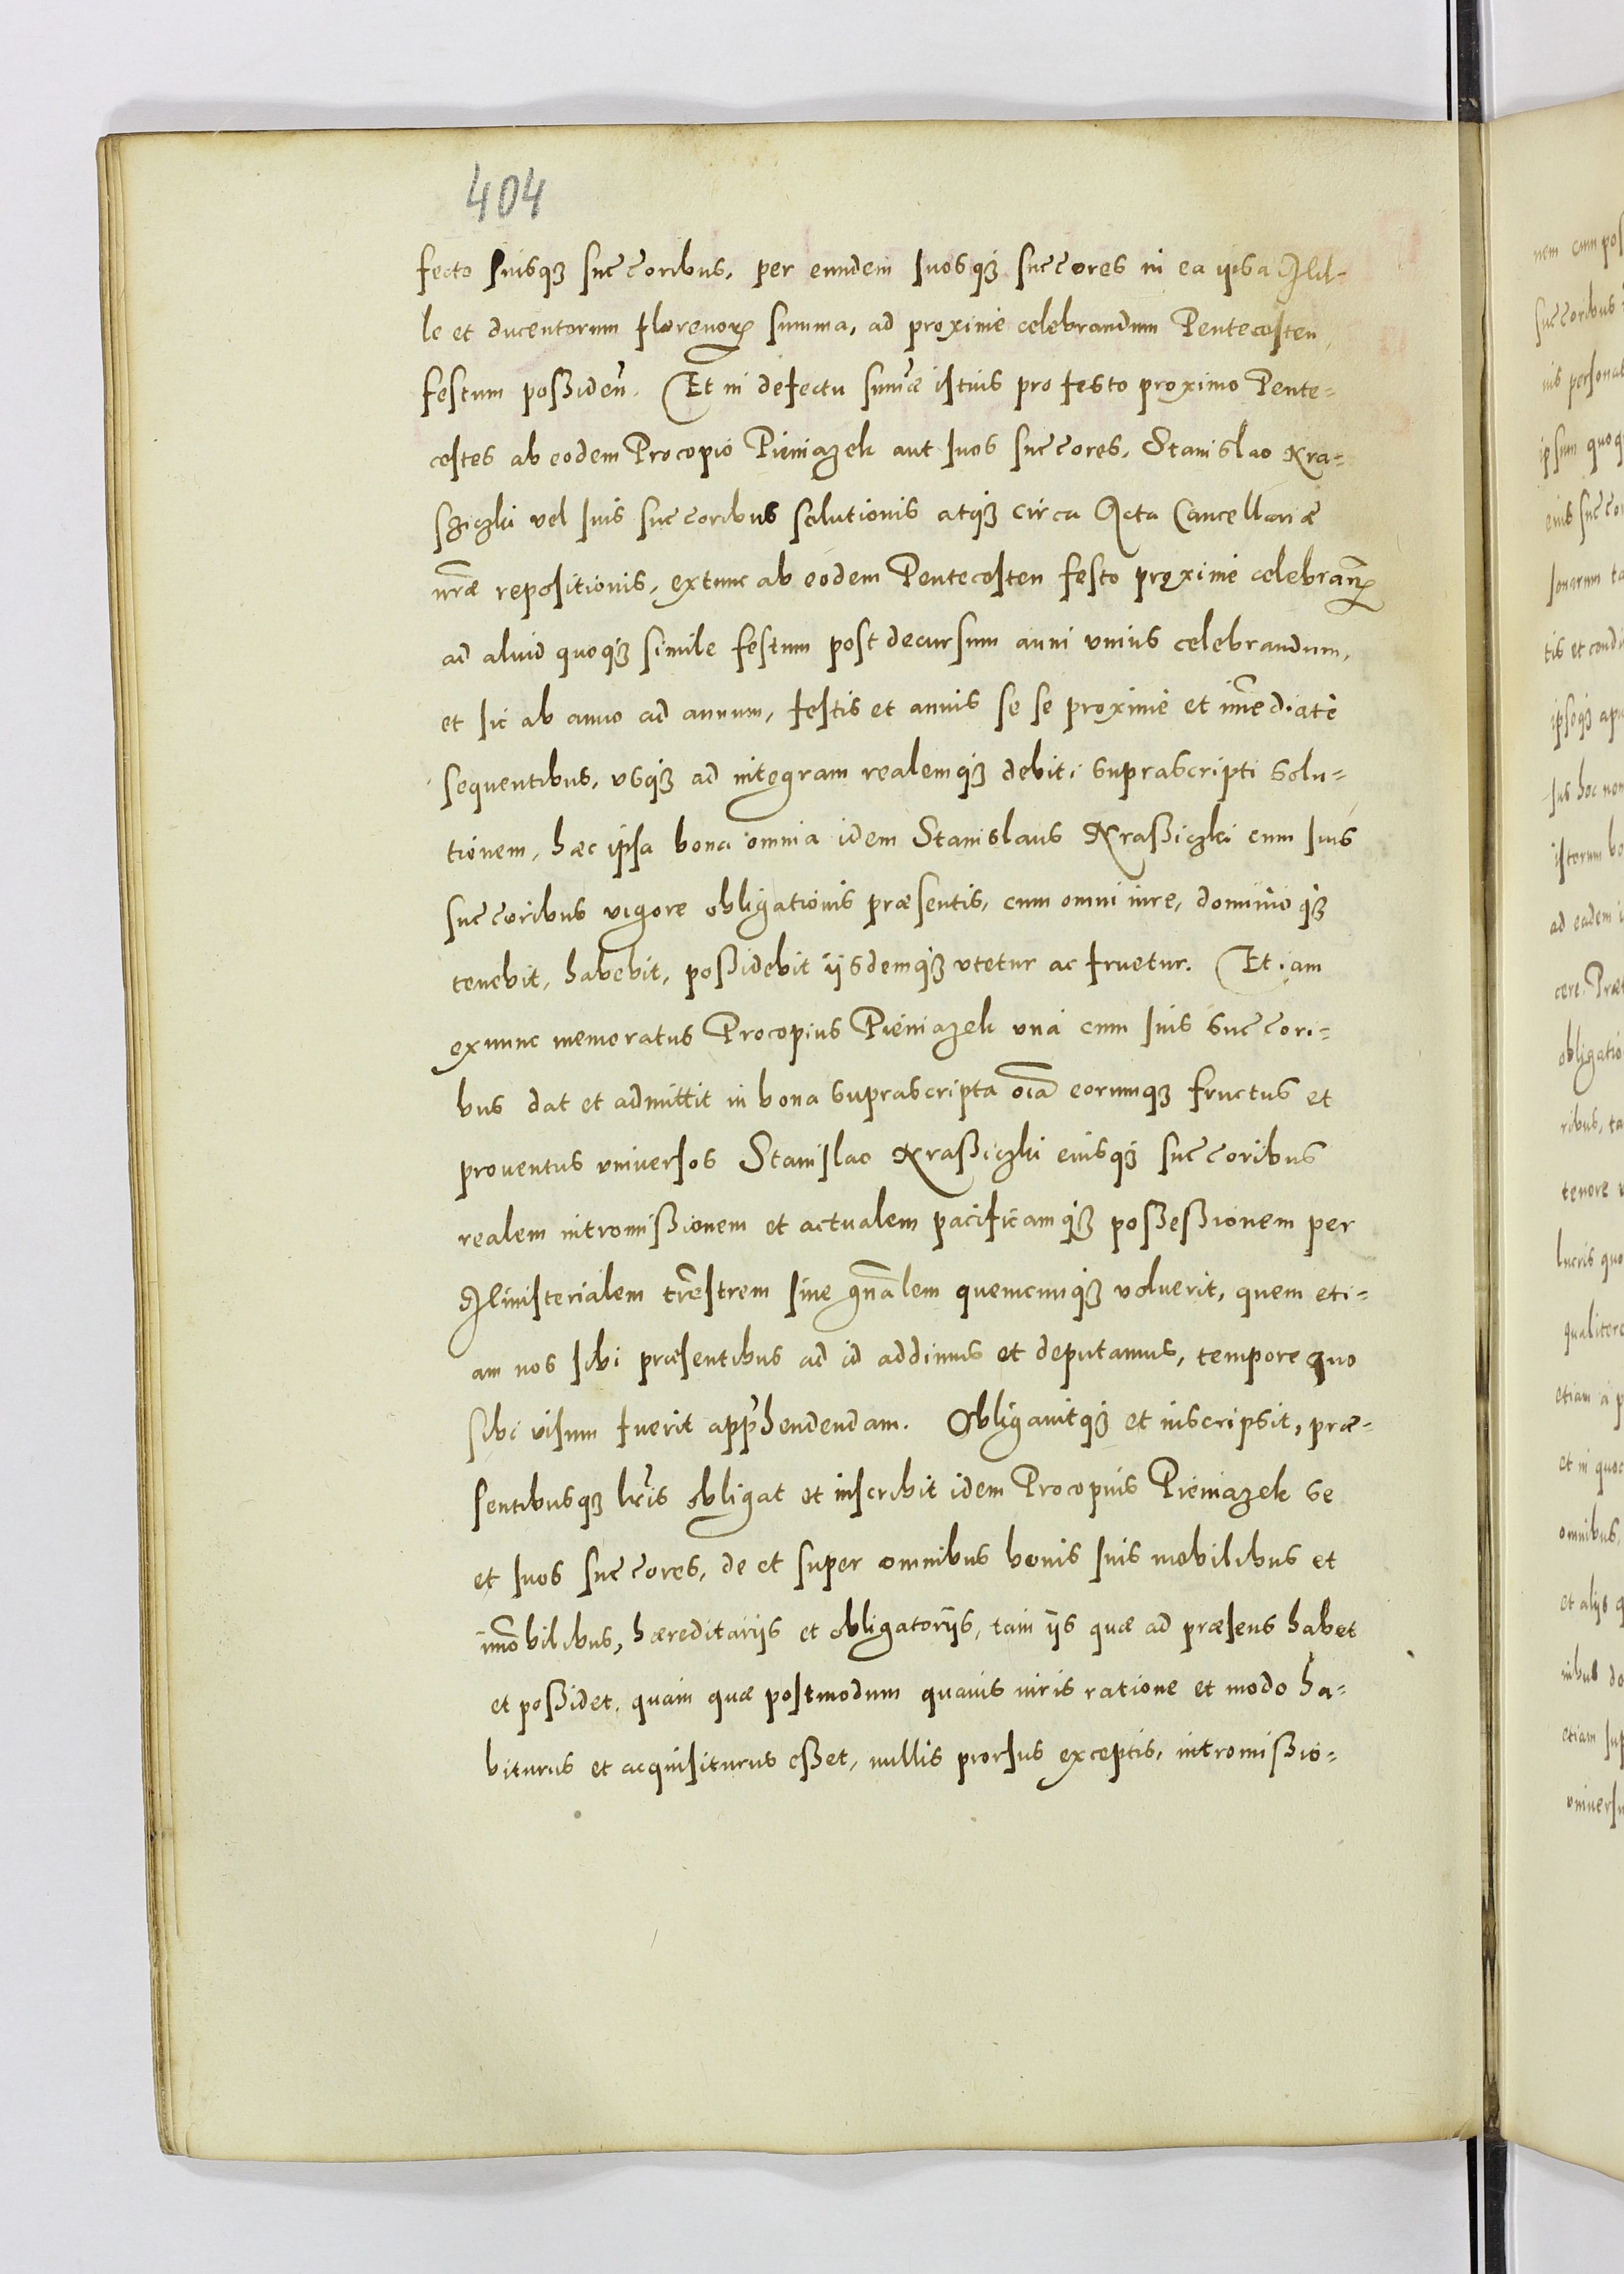 404
fecto suisqꝫ succoribus, per eundem suosqꝫ succores in ea ipsa Mil-
le et ducentorum florenoꝝ summa, ad proxime celebrandum Pentecosten
festum poßideñ. Et in defectu sum̃æ istius pro festo proximo Pente-
costes ab eodem Procopio Pieniazek aut suos succores, Stanislao Kra-
sziczki vel suis succoribus solutionis atqꝫ circa Acta Cancellariæ
nr̃æ repositionis, extunc ab eodem Pentecosten festo proxime celebrañ
ad aliud quoqꝫ simile festum post decursum anni vnius celebrandum,
et sic ab anno ad annum, festis et annis se se proxime et im̃ediatè
sequentibus, vsqꝫ ad integram realemqꝫ debiti suprascripti solu-
tionem, hæc ipsa bona omnia idem Stanislaus Kraßiczki cum suis
succoribus vigore obligationis præsentis, cum omni iure, dominioqꝫ
tenebit, habebit, poßidebit ijsdemqꝫ vtetur ac fruetur. Et iam
exnunc memoratus Procopius Pieniazek vnà cum suis succori-
bus dat et admittit in bona suprascripta oĩa eorumqꝫ fructus et
prouentus vniuersos Stanislao Kraßiczki eiusqꝫ succoribus
realem intromißionem et actualem pacificamqꝫ poßeßionem per
Ministerialem tr̃estrem siue gñalem quemcunqꝫ voluerit, quem eti-
am nos sibi præsentibus ad id addimus et deputamus, tempore quo
sibi visum fuerit app̃hendendam. Obligauitqꝫ et inscripsit, præ-
sentibusqꝫ lr̃is obligat et inscribit idem Procopius Pieniazek se
et suos succores, de et super omnibus bonis suis mobilibus et
im̃obilibus, hæreditarijs et obligatorijs, tam ijs quæ ad præsens habet
et poßidet, quam quæ postmodum quauis iuris ratione et modo ha-
biturus et acquisiturus eßet, nullis prorsus exceptis, intromißio-
nem cum pos
succoribus
nis personal
ipsum quoq
eius succo
sonarum ta
tis et condi
ipseqꝫ apu
ius hoc non
istorum bo
ad eadem i
cere. Præt
obligatio
ribus, ta
tenore v
lucris quo
qualiterc
etiam à p
et in quoc
omnibus,
et alijs q
nibus do
etiam sup
vniuersu